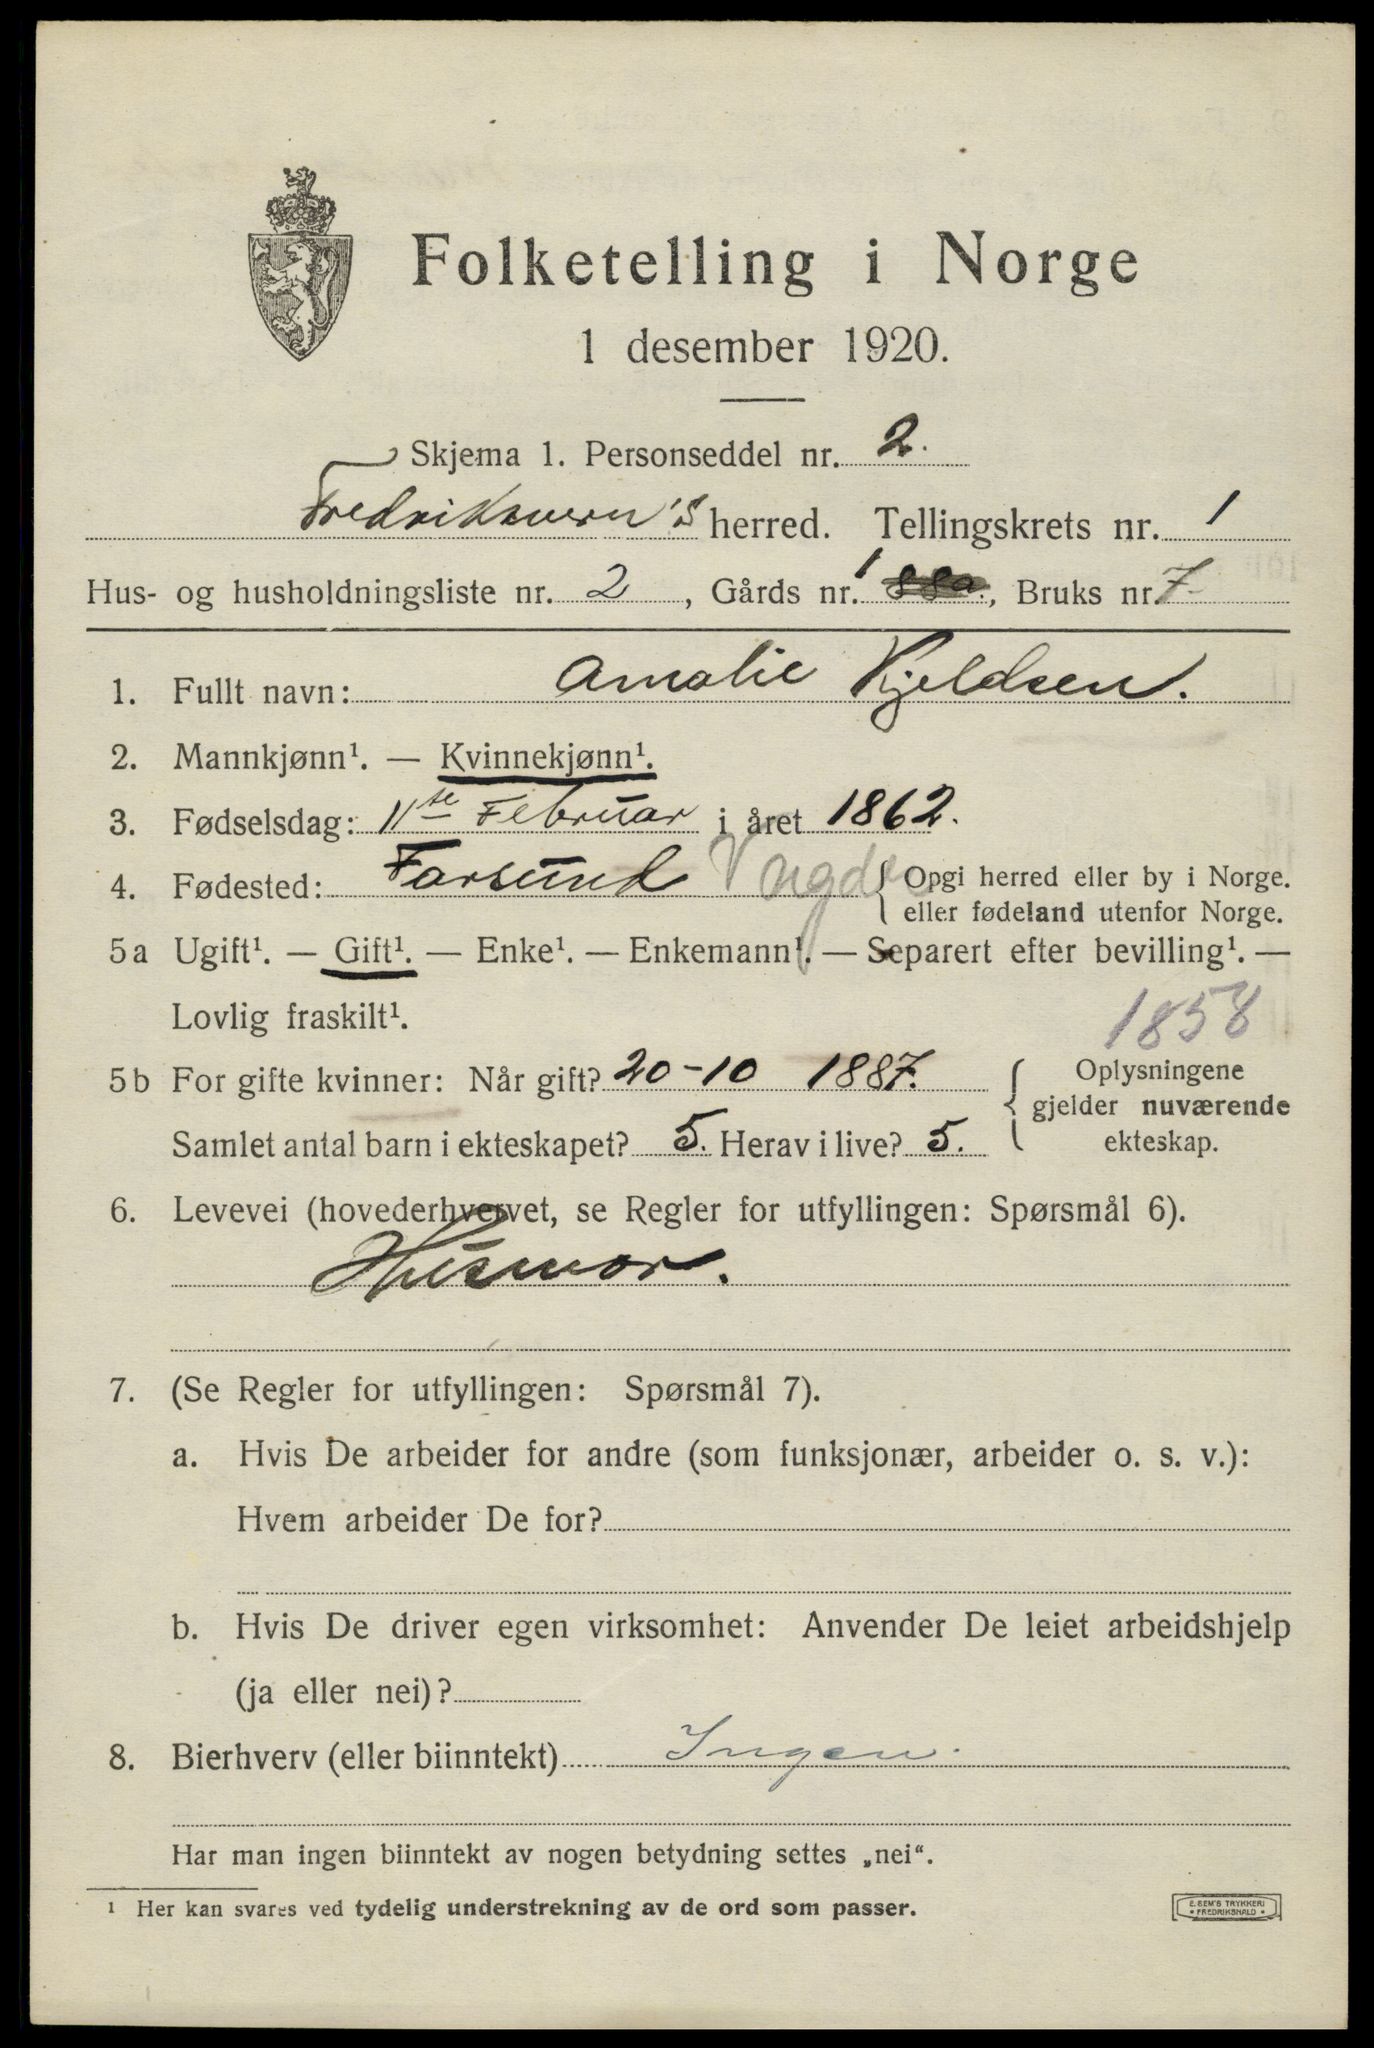 Folketelling i Norge
1 desember 1920.
Skjema 1. Personseddel nr. 2.
Fredriksvern's herred. Tellingskrets nr. 1
Hus- og husholdningsliste nr. 2, Gårds nr. 1 88a., Bruks nr. 7
1. Fullt navn: Amalie Kjeldsen.
2. Mannkjønn¹. — Kvinnekjønn¹.
3. Fødselsdag: 11te Februar i året 1862.
4. Fødested: Farsund { Opgi herred eller by i Norge.
eller fødeland utenfor Norge.
5a Ugift¹. — Gift¹. — Enke¹. — Enkemann¹. — Separert efter bevilling¹. —
Lovlig fraskilt¹.
1858
5b For gifte kvinner: Når gift? 20-10 1887. { Oplysningene
gjelder nuværende
Samlet antal barn i ekteskapet? 5. Herav i live? 5. ekteskap.
6. Levevei (hovederhvervet, se Regler for utfyllingen: Spørsmål 6).
Husmor.
7. (Se Regler for utfyllingen: Spørsmål 7).
a. Hvis De arbeider for andre (som funksjonær, arbeider o. s. v.):
Hvem arbeider De for?
b. Hvis De driver egen virksomhet: Anvender De leiet arbeidshjelp
(ja eller nei)?
8. Bierhverv (eller biinntekt) Ingen.
Har man ingen biinntekt av nogen betydning settes „nei".
¹ Her kan svares ved tydelig understrekning av de ord som passer.
E. SEM'S TRYKKERI
FREDRIKSHALD